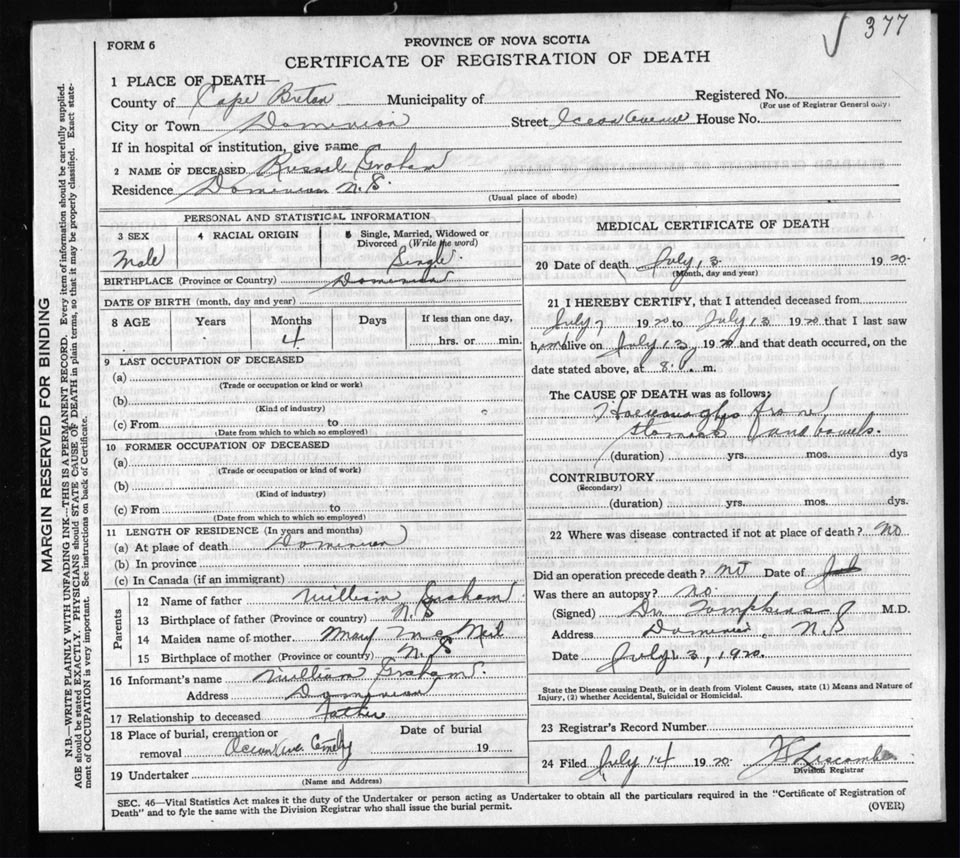 377
FORM 6
PROVINCE OF NOVA SCOTIA
CERTIFICATE OF REGISTRATION OF DEATH
1 PLACE OF DEATH—
County of Cape Breton Municipality of Registered No.
(For use of Registrar General only)
City or Town Dominion Street Ocean Avenue House No.
If in hospital or institution, give name
2 NAME OF DECEASED Russel Graham
Residence Dominion N.S.
(Usual place of abode)
MARGIN RESERVED FOR BINDING
N.B.—WRITE PLAINLY WITH UNFADING INK—THIS IS A PERMANENT RECORD. Every item of information should be carefully supplied.
AGE should be stated EXACTLY. PHYSICIANS should STATE CAUSE OF DEATH in plain terms, so that it may be properly classified. Exact state-
ment of OCCUPATION is very important. See instructions on back of Certificate.
PERSONAL AND STATISTICAL INFORMATION
3 SEX 4 RACIAL ORIGIN 5 Single, Married, Widowed or
Divorced (Write the word)
Male Single.
BIRTHPLACE (Province or Country) Dominion
DATE OF BIRTH (month, day and year)
8 AGE Years Months Days If less than one day,
4 hrs. or min.
9 LAST OCCUPATION OF DECEASED
(a)
(Trade or occupation or kind or work)
(b)
(Kind of industry)
(c) From to
(Date from which to which so employed)
10 FORMER OCCUPATION OF DECEASED
(a)
(Trade or occupation or kind of work)
(b)
(Kind of industry)
(c) From to
(Date from which to which so employed)
11 LENGTH OF RESIDENCE (In years and months)
(a) At place of death Dominion
(b) In province
(c) In Canada (if an immigrant)
Parents
12 Name of father William Graham
13 Birthplace of father (Province or country) N.S
14 Maiden name of mother Mary McNeil
15 Birthplace of mother (Province or country) N.S
16 Informant's name William Graham.
Address Dominion
17 Relationship to deceased Father
18 Place of burial, cremation or Date of burial
removal Ocean Ave. 19
19 Undertaker
(Name and Address)
MEDICAL CERTIFICATE OF DEATH
20 Date of death July 13 1920.
(Month, day and year)
21 I HEREBY CERTIFY, that I attended deceased from
July 7 1920 to July 13 1920 that I last saw
him alive on July 13, 1920 and that death occurred, on the
date stated above, at 8. m.
The CAUSE OF DEATH was as follows:
from
stomach and bowels.
(duration) yrs. mos. dys
CONTRIBUTORY
(Secondary)
(duration) yrs. mos. dys.
22 Where was disease contracted if not at place of death? No
Did an operation precede death? Date of
Was there an autopsy? no.
(Signed) Dr Tompkins M.D.
Address Dominion, N.S
Date July 13, 1920.
State the Disease causing Death, or in death from Violent Causes, state (1) Means and Nature of
Injury, (2) whether Accidental, Suicidal or Homicidal.
23 Registrar's Record Number
24 Filed July 14 1920.
Division Registrar
SEC. 46—Vital Statistics Act makes it the duty of the Undertaker or person acting as Undertaker to obtain all the particulars required in the "Certificate of Registration of
Death" and to fyle the same with the Division Registrar who shall issue the burial permit.
(OVER)